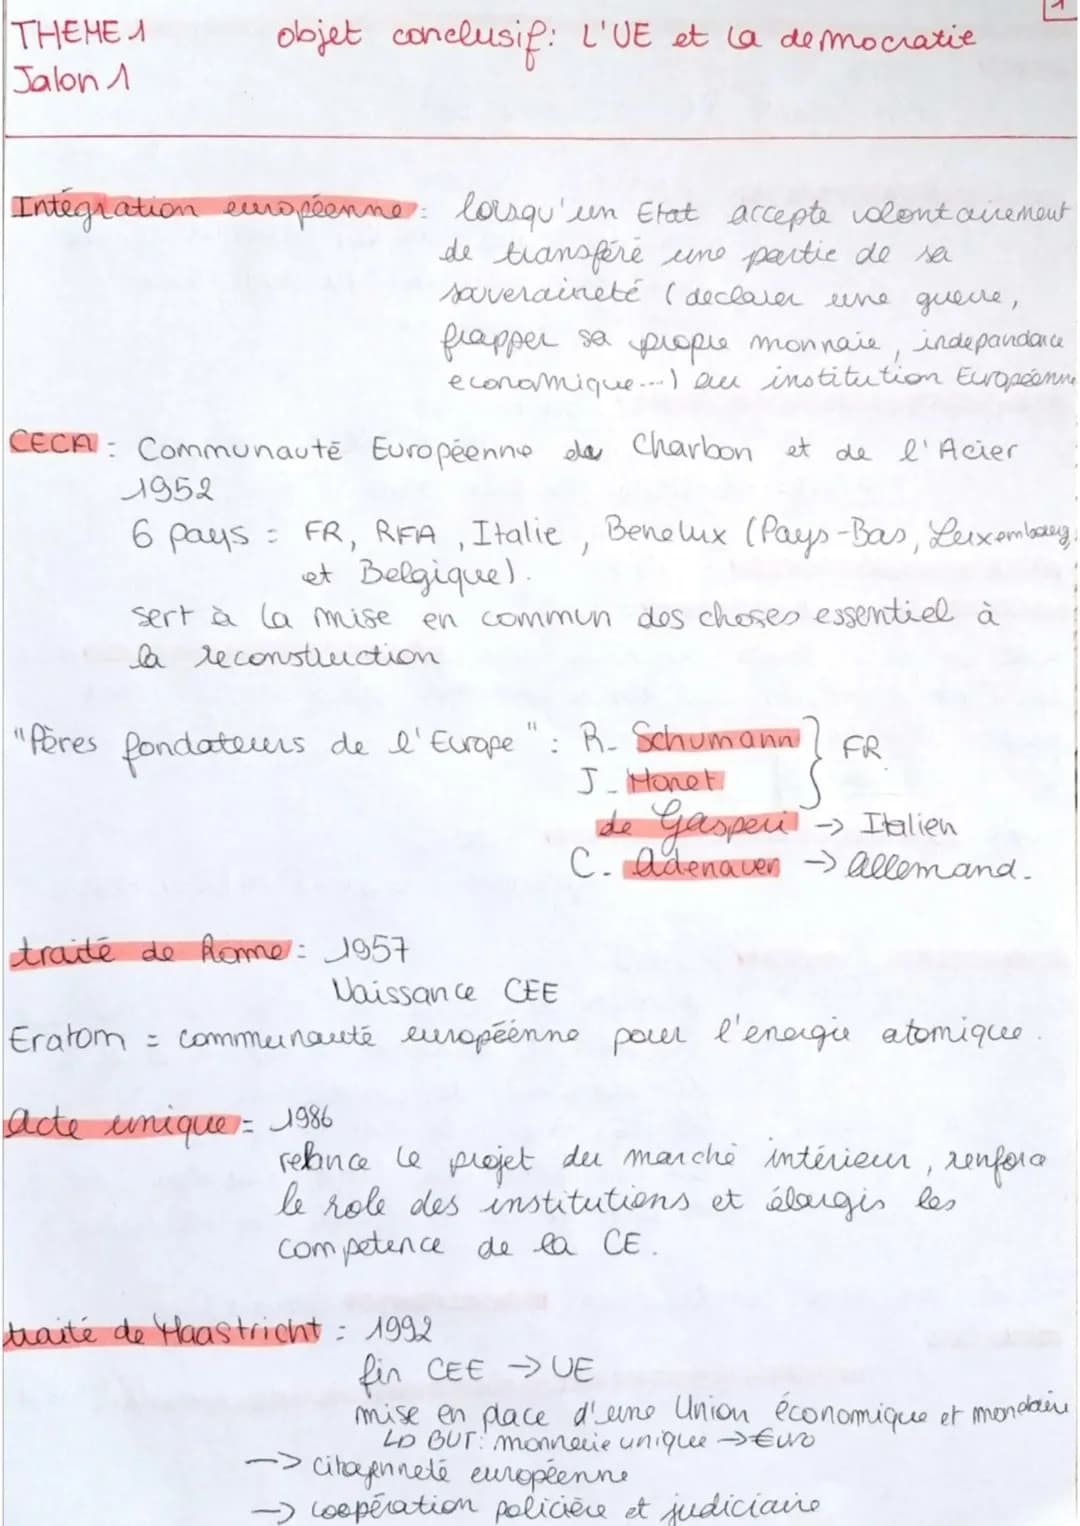 1
THEME 1 objet conclusif: L'UE et la democratie
Jalon 1
Intégration européenne: lorsqu'un Etat accepte volontairement
de transféré une partie de sa
souveraineté (declarer une guerre,
frapper sa propre monnaie, independance
economique...) au institution Européenne
CECA: Communauté Européenne du Charbon et de l'Acier
1952
6 pays: FR, RFA, Italie, Benelux (Pays-Bas, Luxembourg,
et Belgique).
sert à la mise en commun des choses essentiel à
la reconstruction
"Pères fondateurs de l'Europe": R. Schumann } FR.
J. Monet
de Gasperi → Italien
C. Adenauer → allemand.
traité de Rome: 1957
Naissance CEE
Eratom = communauté européenne pour l'energie atomique.
acte unique = 1986
relance le projet du marché intérieur, renforce
le role des institutions et élargis les
competence de la CE.
traité de Maastricht: 1992
fin CEE → UE
mise en place d'une Union économique et monétaire
↳ BUT: monnaie unique → €uro
→ citoyenneté européenne
→ coopération policière et judiciaire